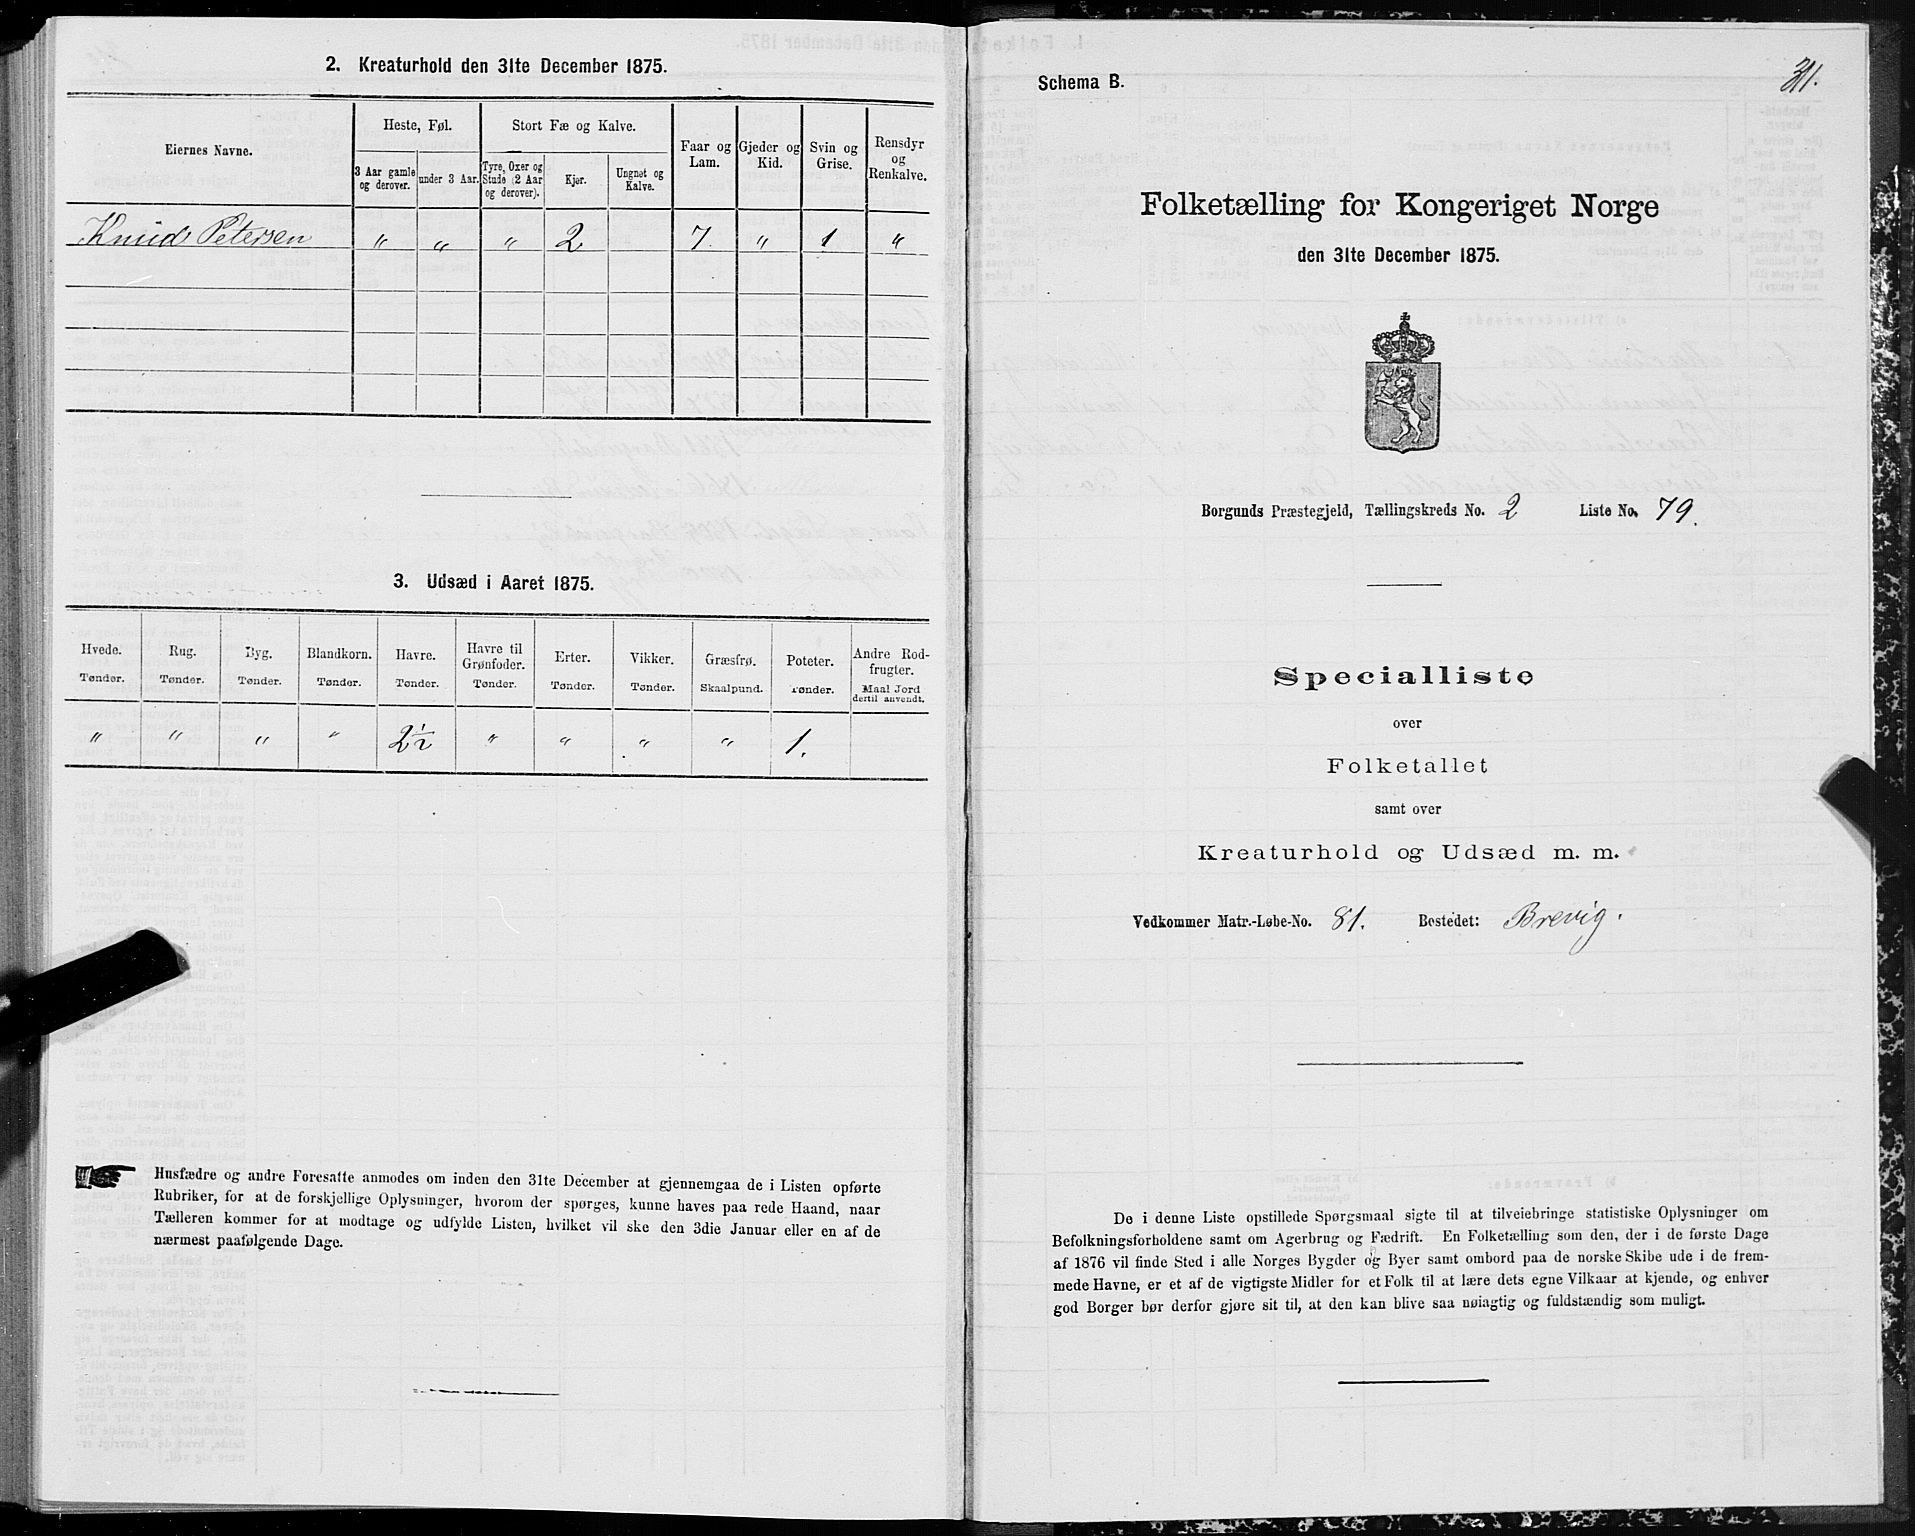 2. Kreaturhold den 31te December 1875.
Eiernes Navne.
Heste, Føl.
Stort Fæ og Kalve.
Faar og Lam.
Gjeder og Kid.
Svin og Grise.
Rensdyr og Renkalve.
3 Aar gamle og derover.
under 3 Aar.
Tyre, Oxer og Stude (2 Aar og derover).
Kjør.
Ungnøt og Kalve.
Knud Petersen " " " 2 7. " 1 "
3. Udsæd i Aaret 1875.
Hvede. Rug. Byg. Blandkorn. Havre. Havre til Grønfoder. Erter. Vikker. Græsfrø. Poteter. Andre Rodfrugter.
Tønder. Tønder. Tønder. Tønder. Tønder. Tønder. Tønder. Tønder. Skaalpund. Tønder. Maal Jord dertil anvendt.
" " " " 2½ " " " " 1.
Husfædre og andre Foresatte anmodes om inden den 31te December at gjennemgaa de i Listen opførte
Rubriker, for at de forskjellige Oplysninger, hvorom der spørges, kunne haves paa rede Haand, naar
Tælleren kommer for at modtage og udfylde Listen, hvilket vil ske den 3die Januar eller en af de
nærmest paafølgende Dage.
Schema B.
31.
Folketælling for Kongeriget Norge
den 31te December 1875.
Borgunds Præstegjeld, Tællingskreds No. 2 Liste No. 79.
Specialliste
over
Folketallet
samt over
Kreaturhold og Udsæd m. m.
Vedkommer Matr.-Løbe-No. 81. Bostedet: Brevig.
De i denne Liste opstillede Spørgsmaal sigte til at tilveiebringe statistiske Oplysninger om
Befolkningsforholdene samt om Agerbrug og Fædrift. En Folketælling som den, der i de første Dage
af 1876 vil finde Sted i alle Norges Bygder og Byer samt ombord paa de norske Skibe ude i de frem-
mede Havne, er et af de vigtigste Midler for et Folk til at lære dets egne Vilkaar at kjende, og enhver
god Borger bør derfor gjøre sit til, at den kan blive saa nøiagtig og fuldstændig som muligt.